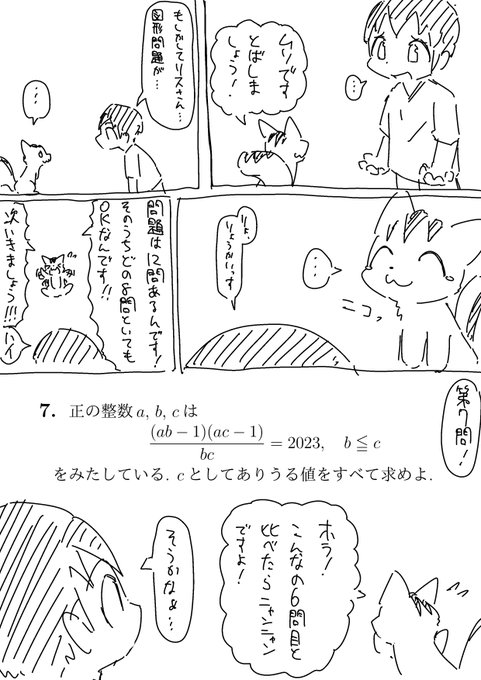 ムリです
とばしま
しょう!
…
もしかしてリスさん…
図形問題が…
…
…
ニコッ
りょ、
りょうかいっす
問題は12問あるんです!
そのうちどの8問といても
OKなんです!!
次いきましょう!!!
ハイ
第7問!
7. 正の整数 a, b, c は
(ab − 1)(ac − 1) / bc = 2023, b ≦ c
をみたしている. c としてありうる値をすべて求めよ.
ホラ!
こんなの6問目と
比べたらニャンニャン
ですよ!
そうかなぁ…